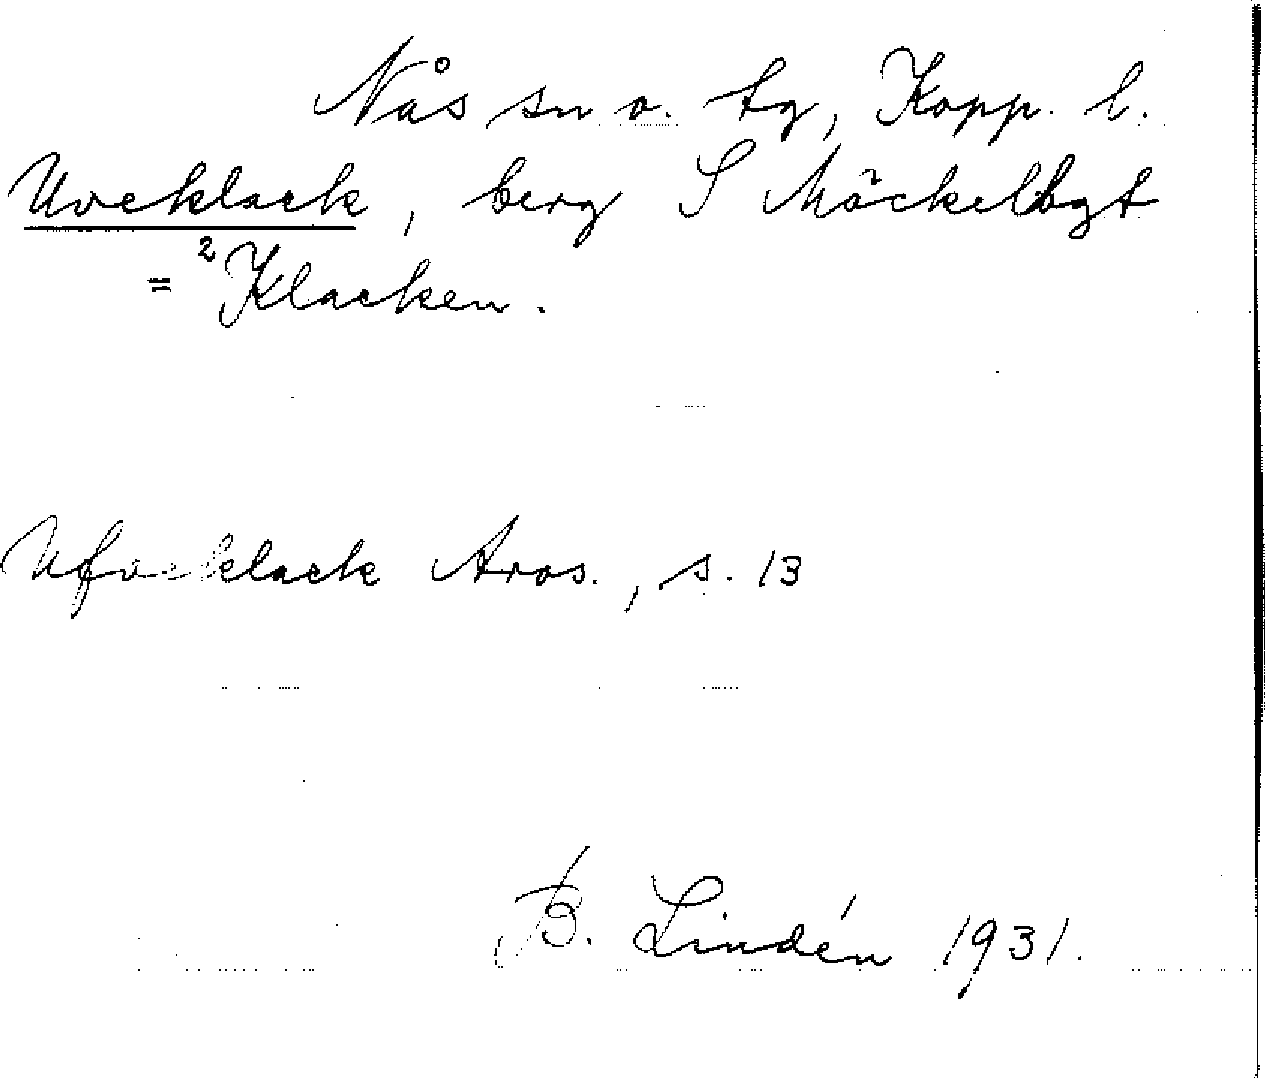 Nås sn o. tg, Kopp. l.
Uveklack, berg S Möckelbgt
= ²Klacken.
Ufveklack Aros., s. 13
B. Lindén 1931.